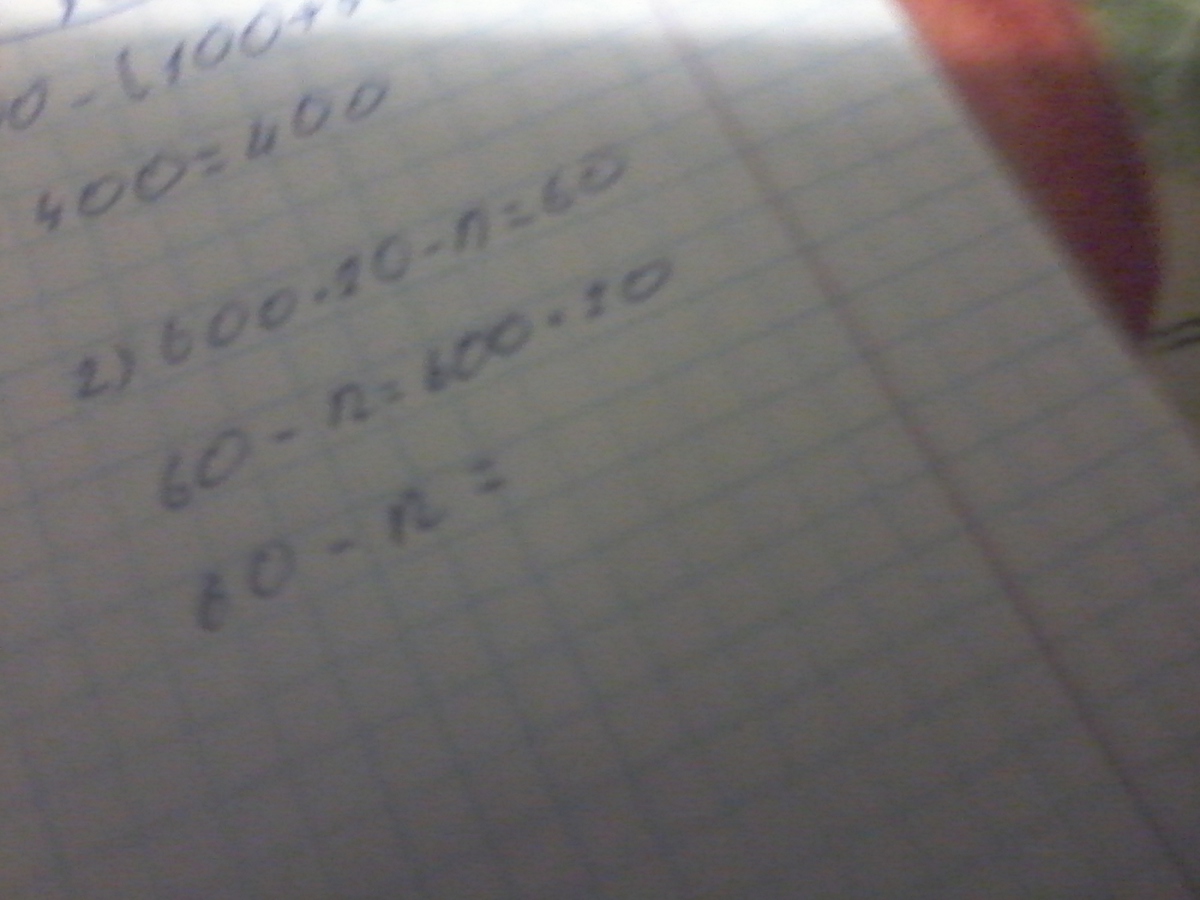 0 - (100+
400=400
2) 600·20-n=60
60 - n = 600·20
60 - n =